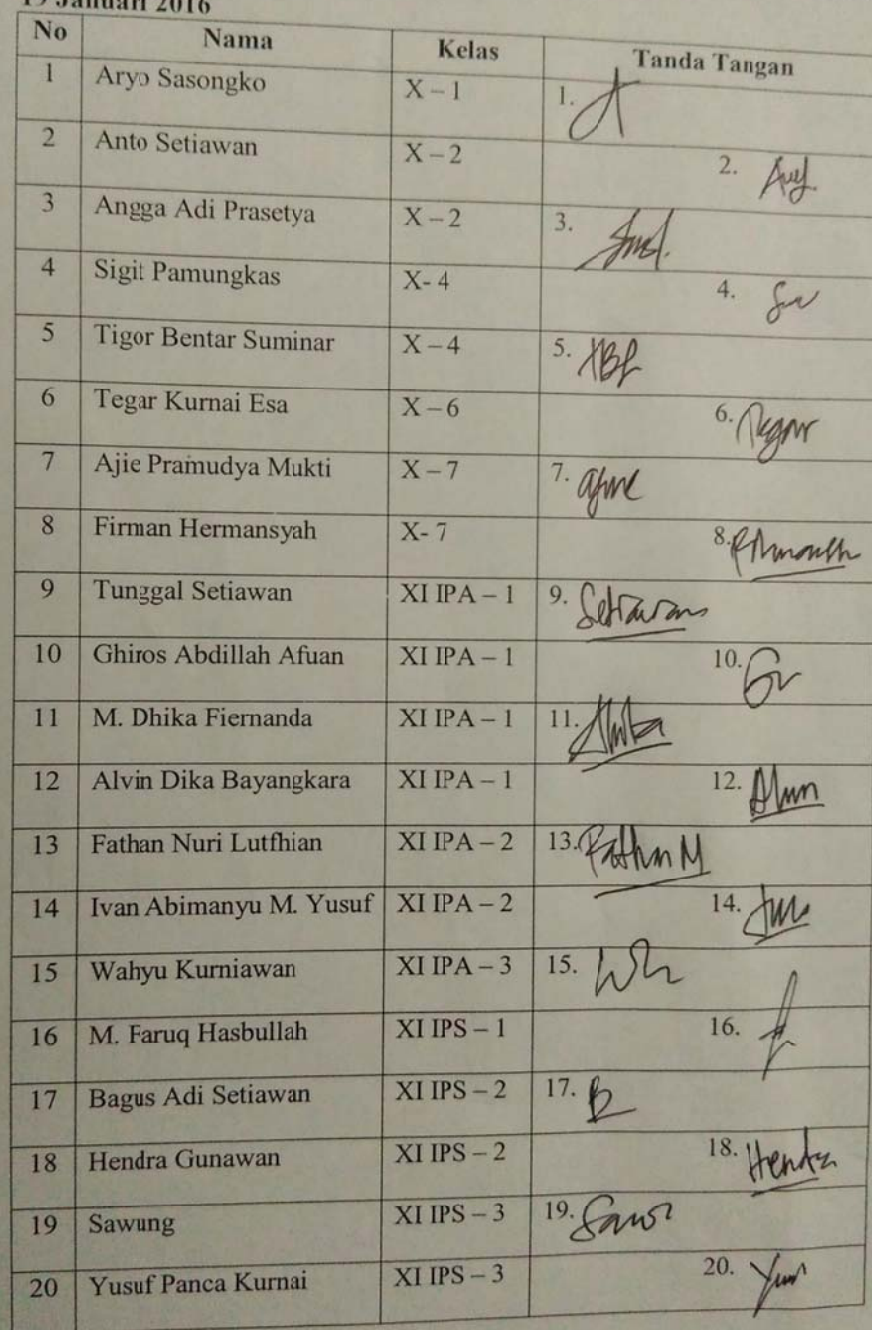 19 Januari 2016
No Nama Kelas Tanda Tangan
1 Aryo Sasongko X – 1 1.
2 Anto Setiawan X – 2 2.
3 Angga Adi Prasetya X – 2 3.
4 Sigit Pamungkas X- 4 4.
5 Tigor Bentar Suminar X – 4 5.
6 Tegar Kurnai Esa X – 6 6. Tegar
7 Ajie Pramudya Mukti X – 7 7.
8 Firman Hermansyah X- 7 8.
9 Tunggal Setiawan XI IPA – 1 9. Setiawan
10 Ghiros Abdillah Afuan XI IPA – 1 10.
11 M. Dhika Fiernanda XI IPA – 1 11.
12 Alvin Dika Bayangkara XI IPA – 1 12.
13 Fathan Nuri Lutfhian XI IPA – 2 13. Fathan N
14 Ivan Abimanyu M. Yusuf XI IPA – 2 14.
15 Wahyu Kurniawan XI IPA – 3 15.
16 M. Faruq Hasbullah XI IPS – 1 16.
17 Bagus Adi Setiawan XI IPS – 2 17.
18 Hendra Gunawan XI IPS – 2 18. Hendra
19 Sawung XI IPS – 3 19.
20 Yusuf Panca Kurnai XI IPS – 3 20.